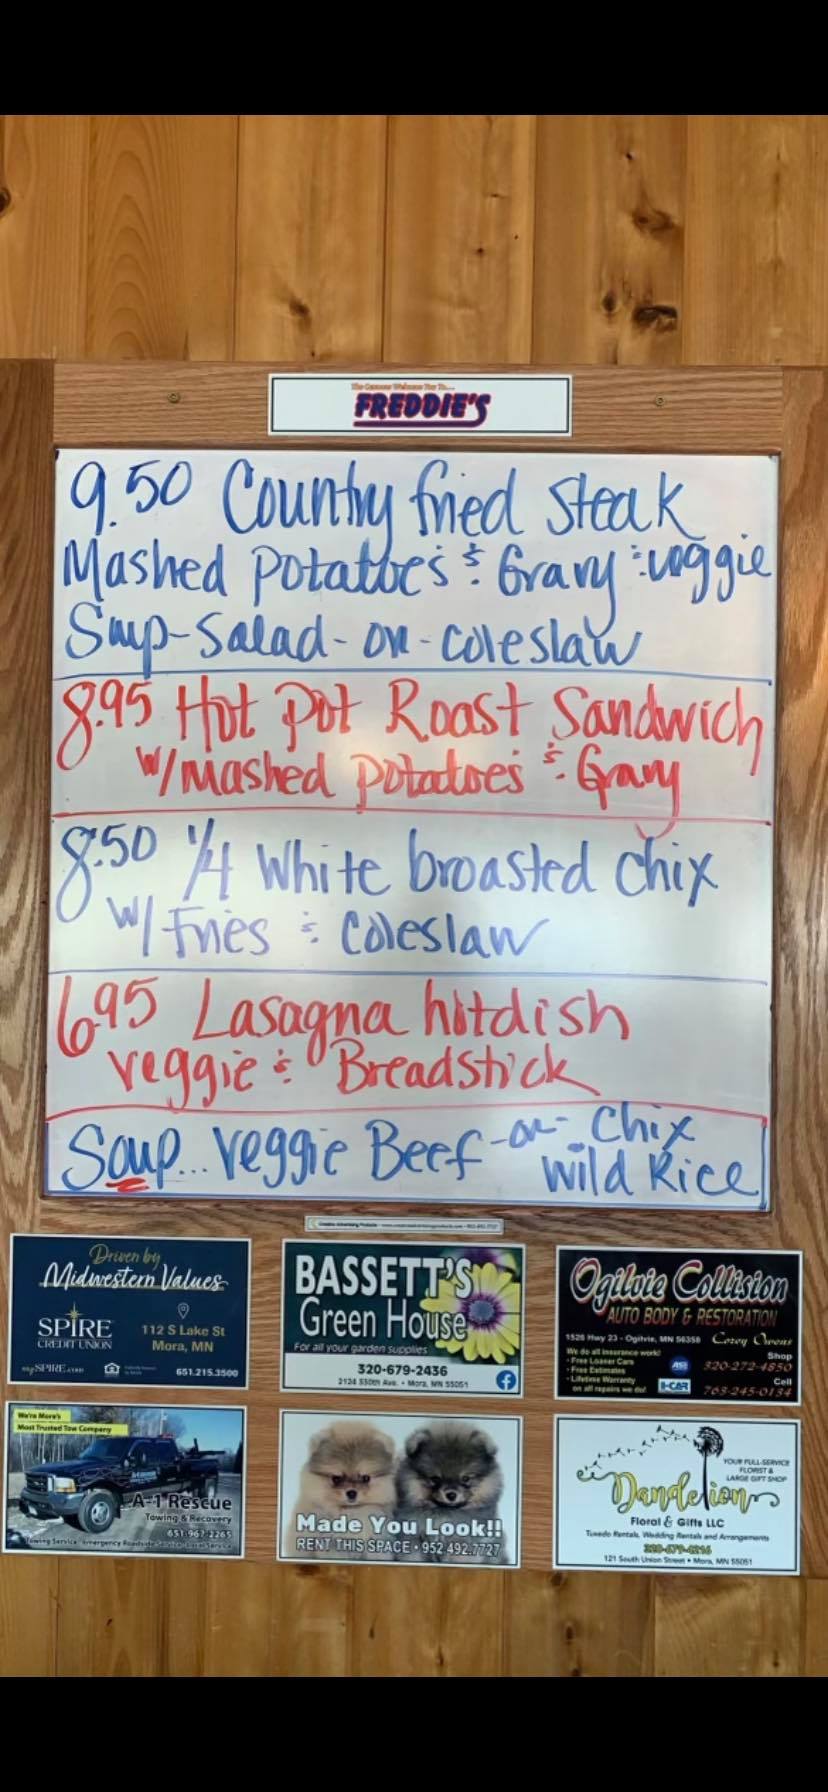 The Gateway Welcomes You To...
FREDDIE'S
9.50 Country fried Steak
Mashed potatoes & Gravy & veggie
Soup-Salad-or-coleslaw
8.95 Hot Pot Roast Sandwich
w/mashed potatoes & Gravy
8.50 1/4 White broasted chix
w/ Fries & Coleslaw
6.95 Lasagna hotdish
veggie & Breadstick
Soup... Veggie Beef -or- Chix
Wild Rice
Driven by
Midwestern Values
SPIRE
CREDIT UNION
112 S Lake St
Mora, MN
mySPIRE.com
651.215.3500
BASSETT'S
Green House
For all your garden supplies
320-679-2436
2124 350th Ave. • Mora, MN 55051
Ogilvie Collision
AUTO BODY & RESTORATION
1526 Hwy 23 - Ogilvie, MN 56358
Corey Owens
We do all insurance work!
• Free Loaner Cars
• Free Estimates
• Lifetime Warranty
on all repairs we do!
ASE
I-CAR
Shop
320-272-4850
Cell
763-245-0134
We're Mora's
Most Trusted Tow Company
A-1 Rescue
Towing & Recovery
651-967-2265
Towing Service · Emergency Roadside Service · Local Service
Made You Look!!
RENT THIS SPACE • 952.492.7727
YOUR FULL-SERVICE
FLORIST &
LARGE GIFT SHOP
Dandelion
Floral & Gifts LLC
Tuxedo Rentals, Wedding Rentals and Arrangements
320-679-4216
121 South Union Street • Mora, MN 55051